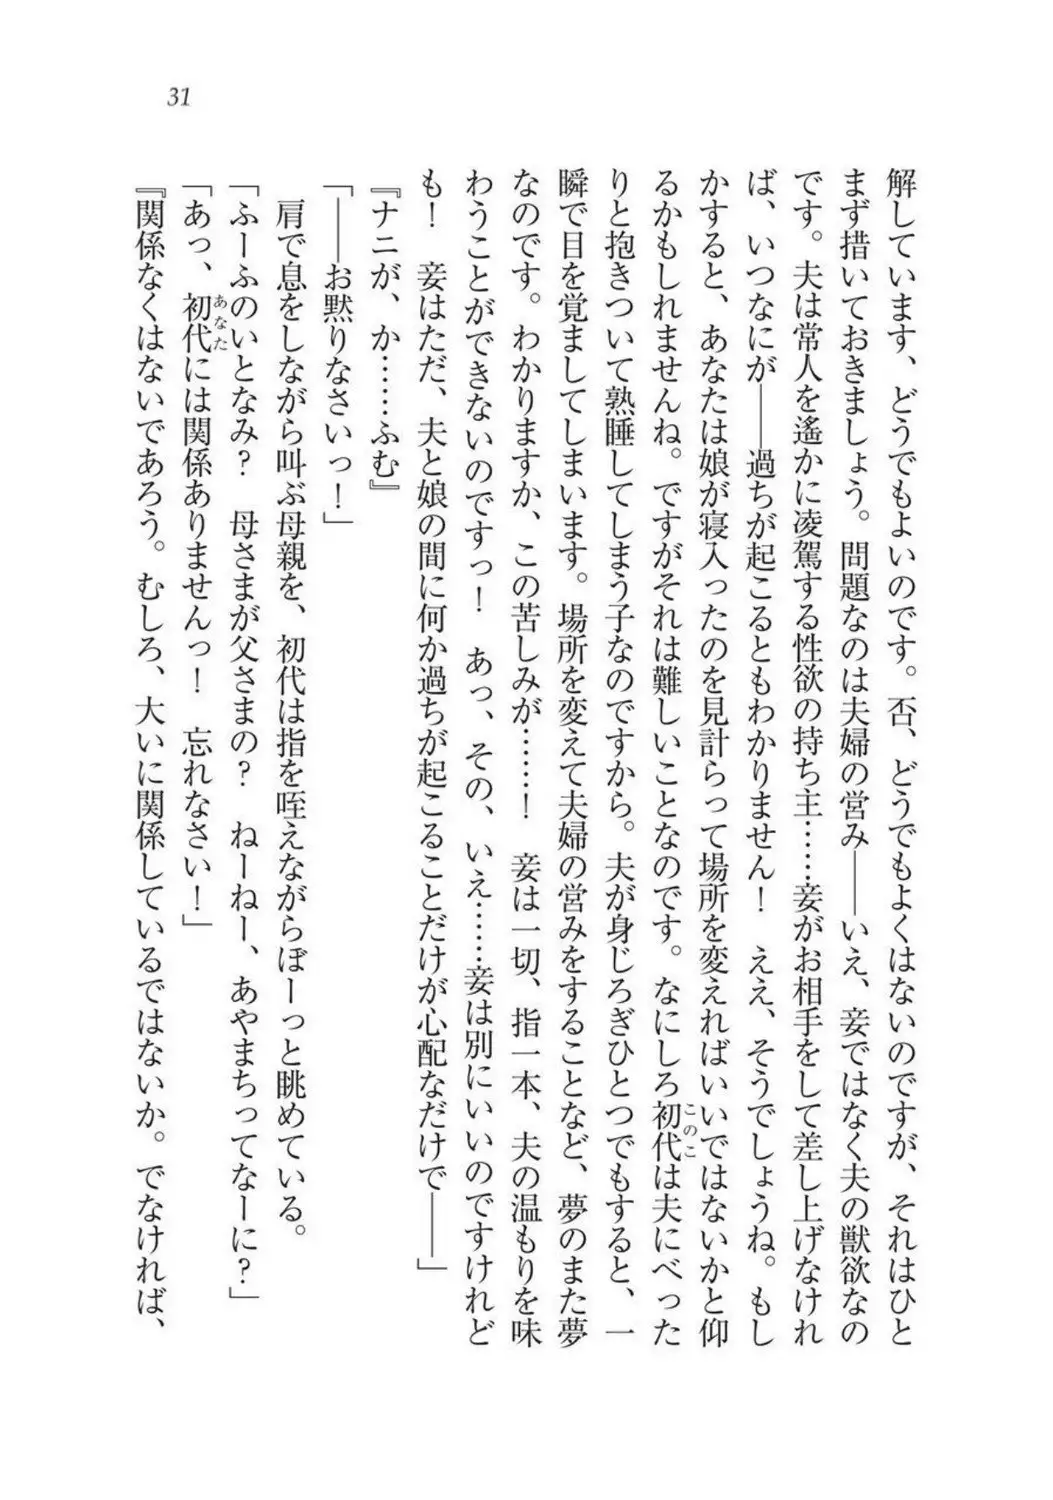 31
解しています、どうでもよいのです。否、どうでもよくはないのですが、それはひと
まず措いておきましょう。問題なのは夫婦の営み――いえ、妾ではなく夫の獣欲なの
です。夫は常人を遙かに凌駕する性欲の持ち主……妾がお相手をして差し上げなけれ
ば、いつなにが――過ちが起こるともわかりません！　ええ、そうでしょうね。もし
かすると、あなたは娘が寝入ったのを見計らって場所を変えればいいではないかと仰
るかもしれませんね。ですがそれは難しいことなのです。なにしろ初代このこは夫にべった
りと抱きついて熟睡してしまう子なのですから。夫が身じろぎひとつでもすると、一
瞬で目を覚ましてしまいます。場所を変えて夫婦の営みをすることなど、夢のまた夢
なのです。わかりますか、この苦しみが……！　妾は一切、指一本、夫の温もりを味
わうことができないのですっ！　あっ、その、いえ……妾は別にいいのですけれど
も！　妾はただ、夫と娘の間に何か過ちが起こることだけが心配なだけで――」
『ナニが、か……ふむ』
「――お黙りなさいっ！」
　肩で息をしながら叫ぶ母親を、初代は指を咥えながらぼーっと眺めている。
「ふーふのいとなみ？　母さまが父さまの？　ねーねー、あやまちってなーに？」
「あっ、初代あなたには関係ありませんっ！　忘れなさい！」
『関係なくはないであろう。むしろ、大いに関係しているではないか。でなければ、